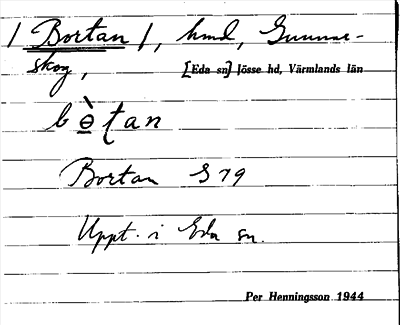 / Bortan /, hmd, Gunnar-
skog, [Eda sn] Jösse hd, Värmlands län
bèːtan
Bortan S 79
Uppt. i Eda sn.
Per Henningsson 1944